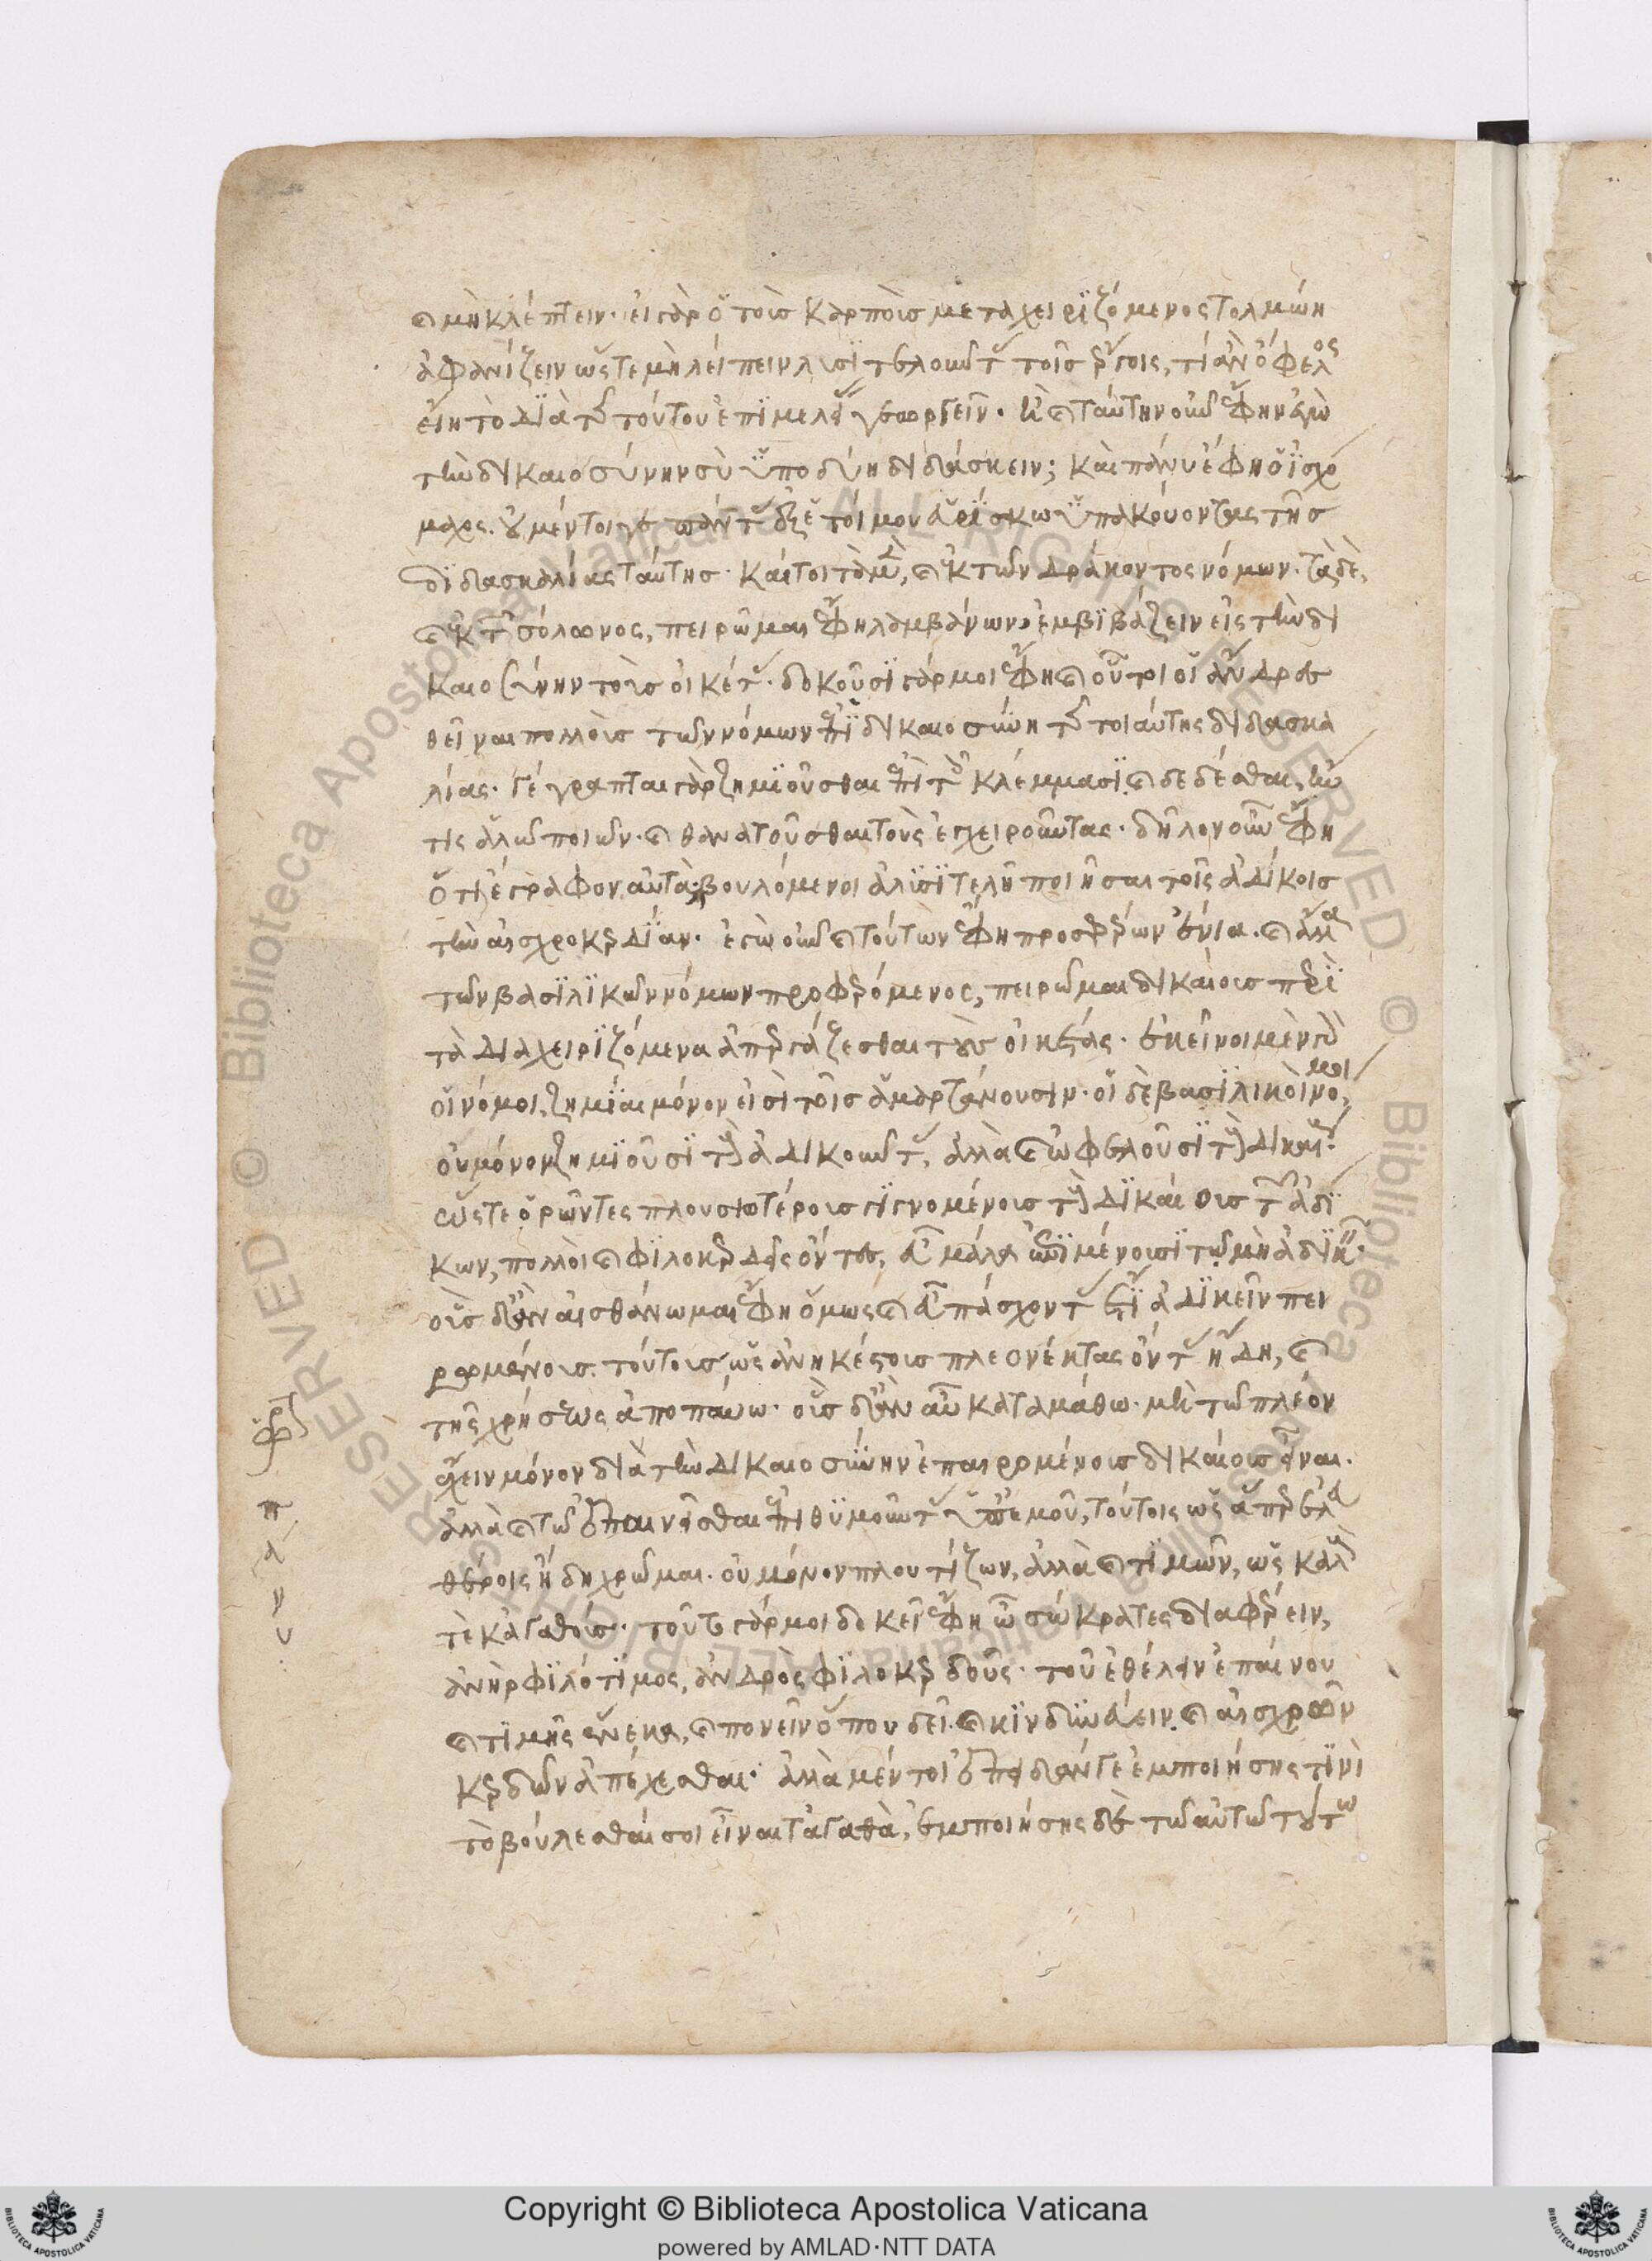 καὶ μὴ κλέπτειν· εἰ γὰρ ὁ τοὺς καρποὺς μεταχειριζόμενος τολμώη
ἀφανίζειν ὥστε μὴ λείπειν λυσιτελοῦντας τοῖς ἔργοις, τί ἂν ὄφελος
εἴη τὸ διὰ τῆς τούτου ἐπιμελείας γεωργεῖν. ἦ καὶ ταύτην οὖν ἔφην ἐγὼ
τὴν δικαιοσύνην σὺ ὑποδύῃ διδάσκειν; καὶ πάνυ ἔφη ὁ ἰσχό
μαχος. οὐ μέντοι γε πάντας ἐξ ἑτοίμου εὑρίσκω ὑπακούοντας τῆς
διδασκαλίας ταύτης. καίτοι τὰ μὲν, καὶ ἐκ τῶν δράκοντος νόμων. τὰ δὲ,
καὶ ἐκ τῶν σόλωνος, πειρῶμαι ἔφη λαμβάνων ἐμβιβάζειν εἰς τὴν δι
καιοσύνην τοὺς οἰκέτας. δοκοῦσι γάρ μοι ἔφη καὶ οὗτοι οἱ ἄνδρες
θεῖναι πολλοὺς τῶν νόμων ἐπὶ δικαιοσύνῃ τῆς τοιαύτης διδασκα
λίας. γέγραπται γὰρ ζημιοῦσθαι ἐπὶ τοῖς κλέμμασι καὶ δεδέσθαι, ἤν
τις ἁλῷ ποιῶν. καὶ θανατοῦσθαι τοὺς ἐγχειροῦντας. δῆλον οὖν ἔφη
ὅτι ἔγραφον αὐτὰ βουλόμενοι ἀλυσιτελῆ ποιῆσαι τοῖς ἀδίκοις
τὴν αἰσχροκερδίαν. ἐγὼ οὖν καὶ τούτων ἔφη προσφέρων ἔνια. καὶ ἄλλα
τῶν βασιλικῶν νόμων προφερόμενος, πειρῶμαι δικαίους περὶ
τὰ διαχειριζόμενα ἀπεργάζεσθαι τοὺς οἰκέτας. ἐκεῖνοι μὲν γὰρ
οἱ νόμοι, ζημίαι μόνον εἰσὶ τοῖς ἁμαρτάνουσιν. οἱ δὲ βασιλικοὶ νόμοι,
οὐ μόνον ζημιοῦσι τοὺς ἀδικοῦντας, ἀλλὰ καὶ ὠφελοῦσι τοὺς δικαίους.
ὥστε ὁρῶντες πλουσιωτέρους γιγνομένους τοὺς δικαίους τῶν ἀδί
κων, πολλοὶ καὶ φιλοκερδεῖς ὄντες, εὖ μάλα ἐπιμένουσι τῷ μὴ ἀδικεῖν.
οὓς δ' ἂν αἰσθάνωμαι ἔφη ὅμως καὶ εὖ πάσχοντας ἔτι ἀδικεῖν πει
ρωμένους. τούτους, ὡς ἀνηκέστους πλεονέκτας ὄντας ἤδη, καὶ
τῆς χρήσεως ἀποπαύω. οὓς δ' ἂν αὖ καταμάθω. μὴ τῷ πλέον
ἔχειν μόνον διὰ τὴν δικαιοσύνην ἐπαιρομένους δικαίους εἶναι.
ἀλλὰ καὶ τῷ ἐπαινεῖσθαι ἐπιθυμοῦντας ὑπ' ἐμοῦ, τούτοις ὥσπερ ἐλευ
θέροις ἤδη χρῶμαι. οὐ μόνον πλουτίζων, ἀλλὰ καὶ τιμῶν, ὡς καλούς
τε κἀγαθούς. τούτῳ γάρ μοι δοκεῖ ἔφη ὦ σώκρατες διαφέρειν,
ἀνὴρ φιλότιμος, ἀνδρὸς φιλοκερδοῦς. τοῦ ἐθέλειν ἐπαίνου
καὶ τιμῆς ἕνεκα, καὶ πονεῖν ὅπου δεῖ. καὶ κινδυνεύειν, καὶ αἰσχρῶν
κερδῶν ἀπέχεσθαι. ἀλλὰ μέντοι ἐπειδάν γε ἐμποιήσῃς τινὶ
τὸ βούλεσθαί σοι εἶναι τἀγαθά, ἐμποιήσῃς δὲ τῷ αὐτῷ τούτῳ